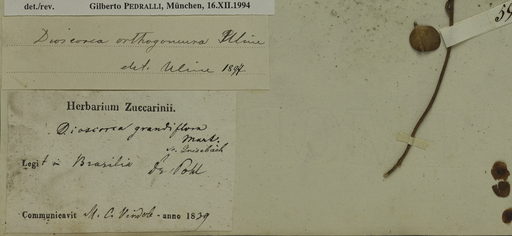 det./rev. Gilberto PEDRALLI, München, 16.XII.1994
Dioscorea orthogoneura Uline
det. Uline 1897
Herbarium Zuccarinii.
Dioscorea grandiflora
Mart.
v. Grisebach
Legit in Brasilia Dr Pohl
Communicavit M. C. Vindob - anno 1839
59